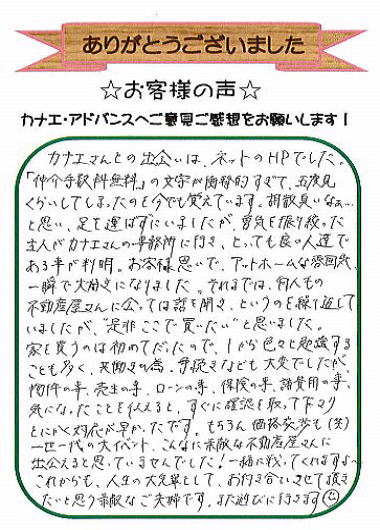 ありがとうございました
☆お客様の声☆
カナエ・アドバンスへご意見ご感想をお願いします！
カナエさんとの出会いは、ネットのHPでした。
「仲介手数料無料」の文字が衝撃的すぎて、五度見
くらいしてしまったのを今でも覚えています。胡散臭いなぁ…
と思い、足を運ばずにいましたが、勇気を振り絞った
主人がカナエさんの事務所に行き、とっても良い人達で
ある事が判明。お客様思いで、アットホームな雰囲気、
一瞬で大好きになりました。それまでは、何人もの
不動産屋さんに会っては話を聞き、というのを繰り返して
いましたが、“是非ここで買いたい”と思いました。
家を買うのは初めてだったので、1から色々と勉強する
ことも多く、共働きの為、手続きなども大変でしたが
物件の事、売主の事、ローンの事、保険の事、諸費用の事、
気になったことを伝えると、すぐに確認を取って下さり
とにかく対応が早かったです。もちろん価格交渉も(笑)
一世一代の大イベント、こんなに素敵な不動産屋さんに
出会えると思っていませんでした！一緒に戦ってくれますよ〜
これからも、人生の大先輩として、お付き合いさせて頂き
たいと思う素敵なご夫婦です。また遊びに行きます